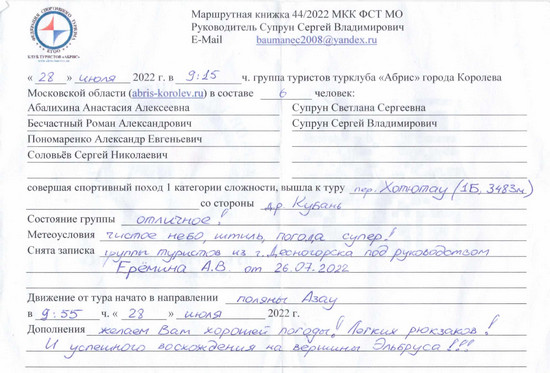 Маршрутная книжка 44/2022 МКК ФСТ МО
Руководитель Супрун Сергей Владимирович
E-Mail baumanec2008@yandex.ru
КЛУБ ТУРИСТОВ «АБРИС»
« 28 » июля 2022 г. в 9:15 ч. группа туристов турклуба «Абрис» города Королева
Московской области (abris-korolev.ru) в составе 6 человек:
Абалихина Анастасия Алексеевна Супрун Светлана Сергеевна
Бесчастный Роман Александрович Супрун Сергей Владимирович
Пономаренко Александр Евгеньевич
Соловьёв Сергей Николаевич
совершая спортивный поход 1 категории сложности, вышла к туру пер. Хотютау (1Б, 3483м)
со стороны д.р. Кубань
Состояние группы отличное!
Метеоусловия чистое небо, штиль, погода супер!
Снята записка группы туристов из г. Десногорска под руководством
Ерёмина А.В. от 26.07.2022
Движение от тура начато в направлении поляны Азау
в 9:55 ч. « 28 » июля 2022 г.
Дополнения желаем Вам хорошей погоды! Легких рюкзаков!
И успешного восхождения на вершины Эльбруса!!!